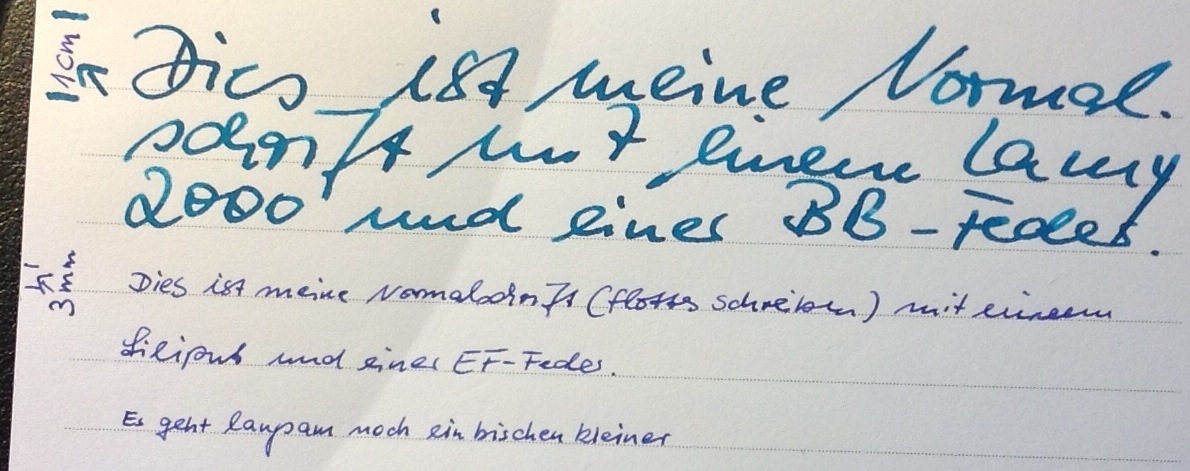 1cm
Dies ist meine Normal.
schrift mit einem Lamy
2000 und einer BB-Feder.
3mm
Dies ist meine Normalschrift (flottes schreiben) mit einem
Liliput und einer EF-Feder.
Es geht langsam noch ein bischen kleiner